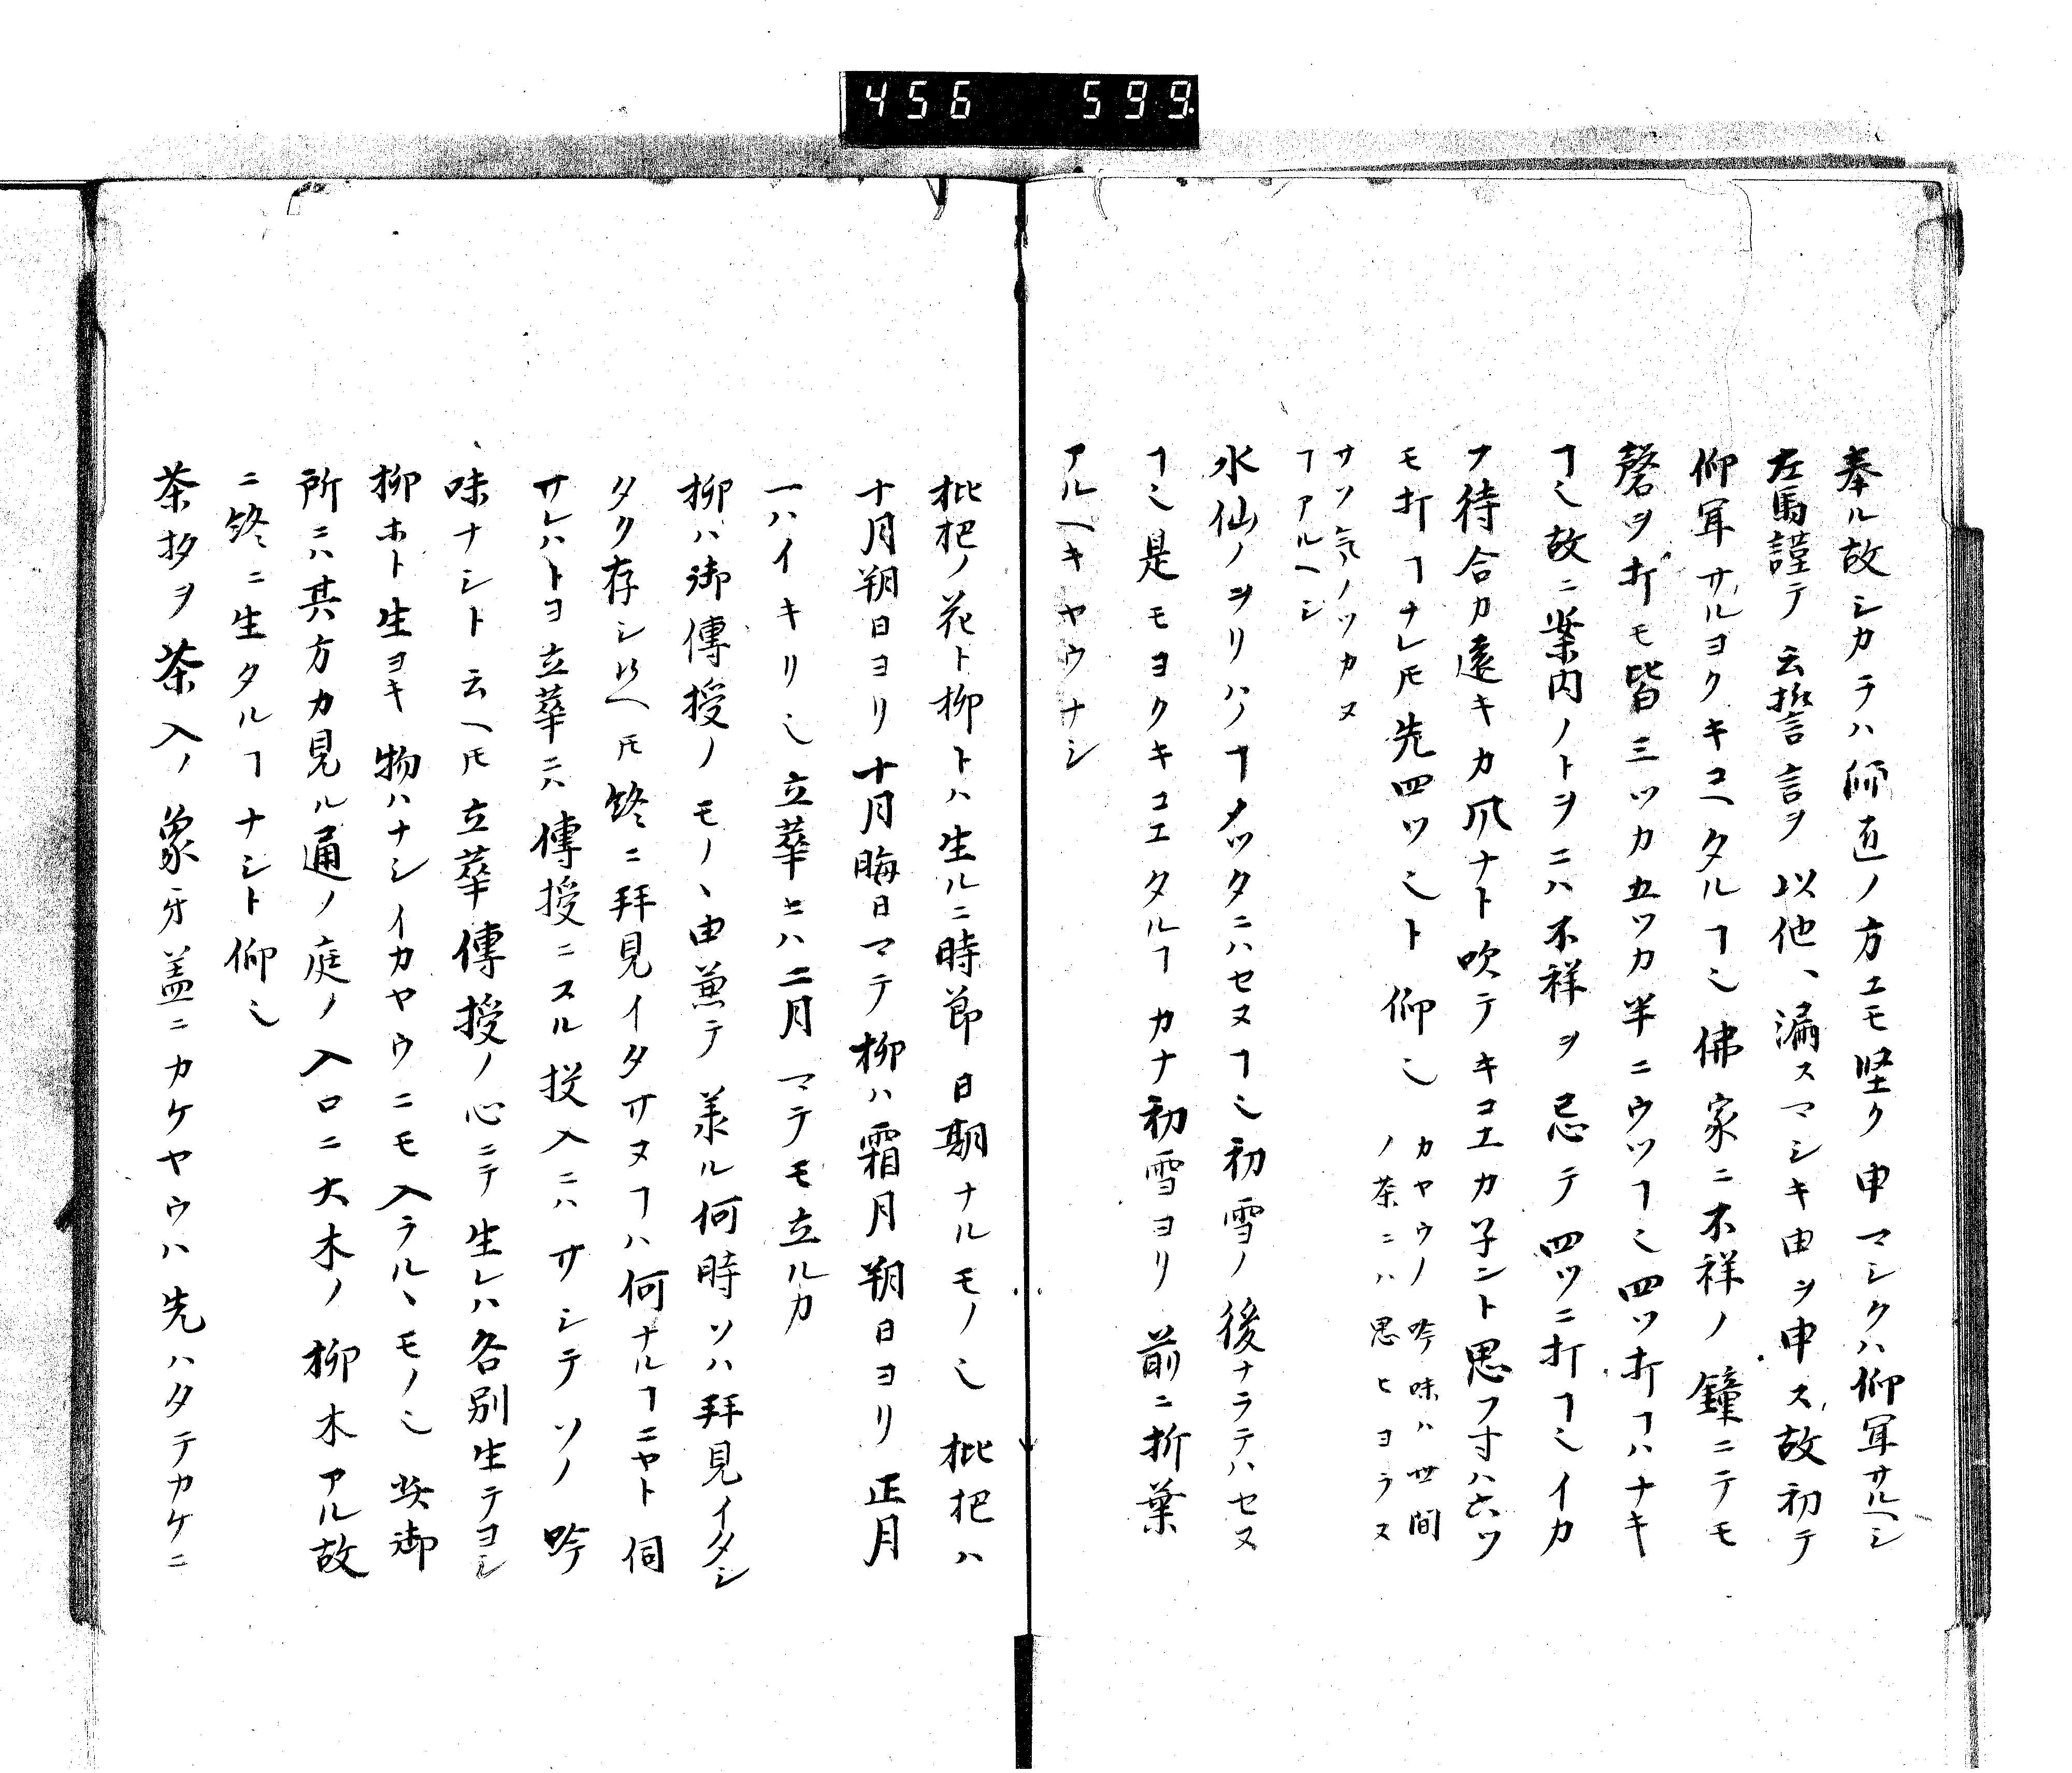 456 599
奉ル故シカラハ師匠ノ方エモ堅ク申マシクハ仰聞サルヘシ
左馬謹テ云誓言ヲ以他ヽ漏スマシキ由ヲ申ス故初テ
仰聞サルヨクキコヘタルヿ也佛家ニ不祥ノ鐘ニテモ
磬ヲ打モ皆三ツカ五ツカ半ニウツヿ也四ツ打ヿハナキ
ヿ也故ニ案内ノトヲニハ不祥ヲ忌テ四ツニ打ヿ也イカ
ナ待合カ遠キカ爪ナト吹テキコエカ子ント思フ寸ハ六ツ
モ打ヿナレ𪜈先四ツ也ト仰也
カヤウノ吟味ハ世間
ノ茶ニハ思ヒヨラス
サソ気ノツカヌ
ヿアルヘシ
水仙ノヲリハノヿメツタニハセヌヿ也初雪ノ後ナラテハセヌ
ヿ也是モヨクキコエタルヿカナ初雪ヨリ前ニ折葉
アルヘキヤウナシ
枇杷ノ花ト柳トハ生ルニ時節日期ナルモノ也枇杷ハ
十月朔日ヨリ十月晦日マテ柳ハ霜月朔日ヨリ正月
一ハイキリ也立華ニハ二月マテモ立ルカ
柳ハ御傳授ノモノヽ由兼テ承ル何時ソハ拜見イタシ
タク存シ候ヘ𪜈終ニ拜見イタサヌヿハ何ナルヿニヤト伺
サレハトヨ立華ニハ傳授ニスル投入ニハサシテソノ吟
味ナシト云ヘ𪜈立華傳授ノ心ニテ生レハ各別生テヨシ
柳ホト生ヨキ物ハナシイカヤウニモ入ラルヽモノ也此御
所ニハ其方カ見ル通ノ庭ノ入口ニ大木ノ柳木アル故
ニ終ニ生タルヿナシト仰也
茶杓ヲ茶入ノ象牙蓋ニカケヤウハ先ハタテカケニ